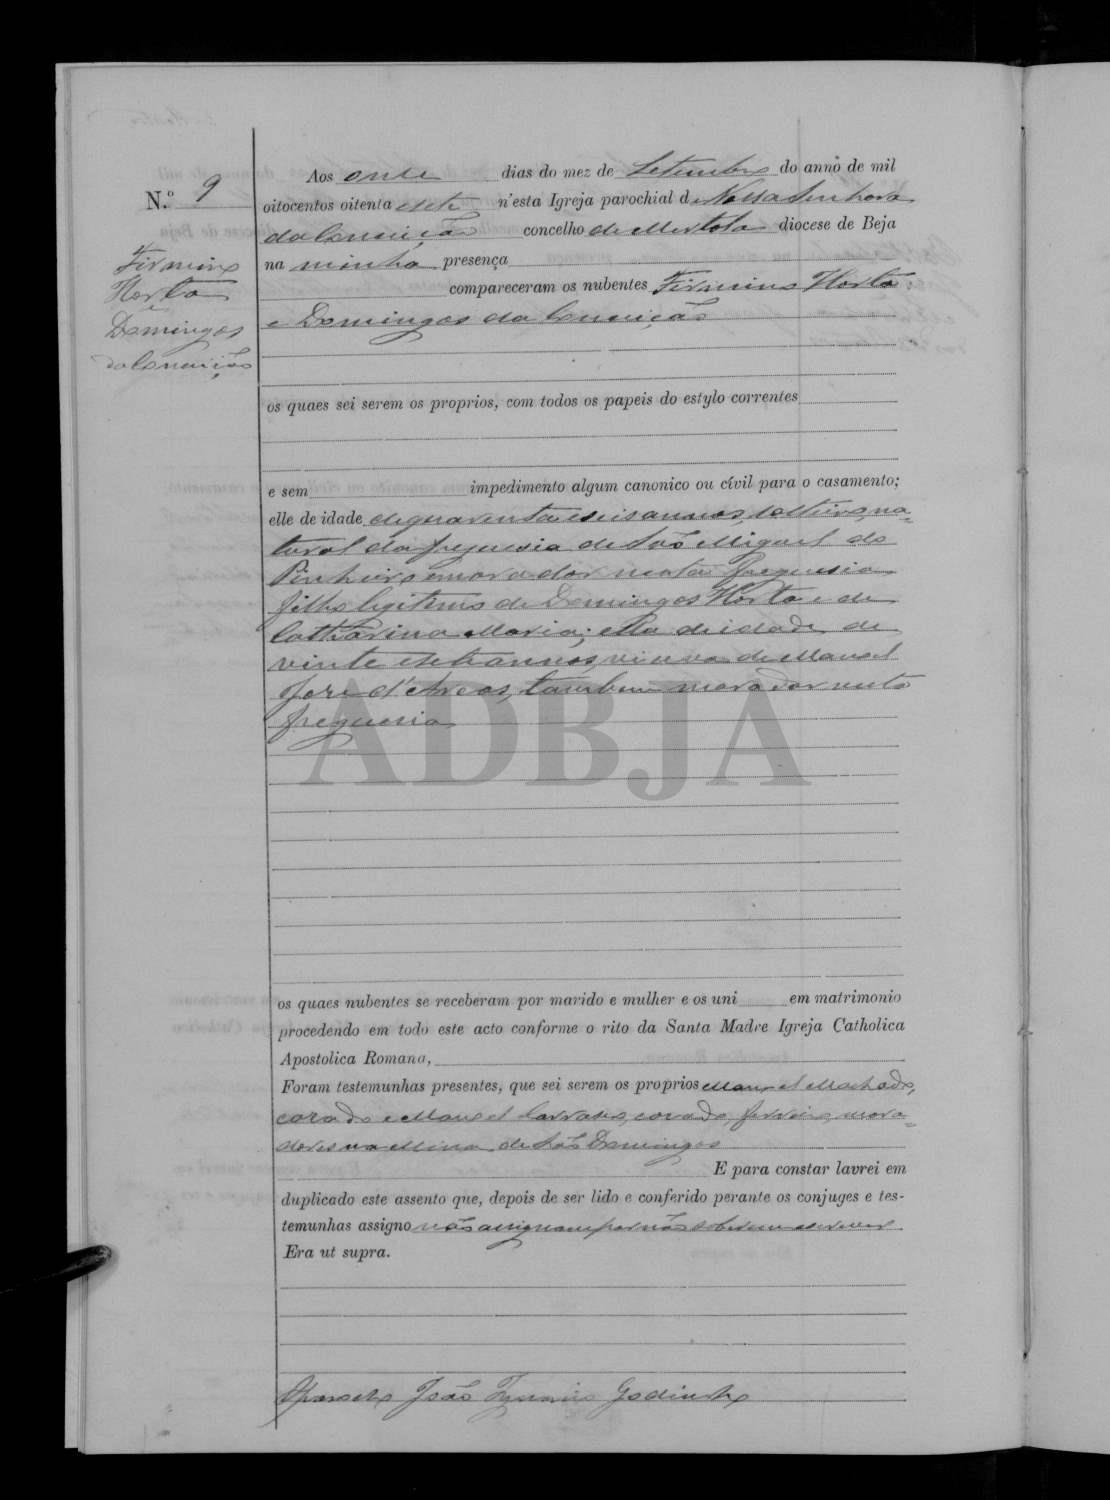 N.º 9
Firmino
Horta
Domingos
da Conceição
Aos onze dias do mez de Setembro do anno de mil
oitocentos oitenta e sete n'esta Igreja parochial de Nossa Senhora
da Conceição concelho de Mertola diocese de Beja
na minha presença
compareceram os nubentes Firmino Horta
e Domingos da Conceição
os quaes sei serem os proprios, com todos os papeis do estylo correntes
e sem impedimento algum canonico ou civil para o casamento;
elle de idade de quarenta e seis annos, solteiro, na-
tural da freguesia de São Miguel do
Pinheiro e morador nesta freguesia
filho legitimo de Domingos Horta e de
Catharina Maria; ella de idade de
vinte e sete annos, viuva de Manoel
José d'Areos, tambem morador nesta
freguesia
ADBJA
os quaes nubentes se receberam por marido e mulher e os uni em matrimonio
procedendo em todo este acto conforme o rito da Santa Madre Igreja Catholica
Apostolica Romana,
Foram testemunhas presentes, que sei serem os proprios Manoel Machado,
casado e Manoel, casado, ferreiro, mora-
dores na Mina de São Domingos
E para constar lavrei em
duplicado este assento que, depois de ser lido e conferido perante os conjuges e tes-
temunhas assigno não assignam por não saberem escrever
Era ut supra.
O Parocho João Godinho